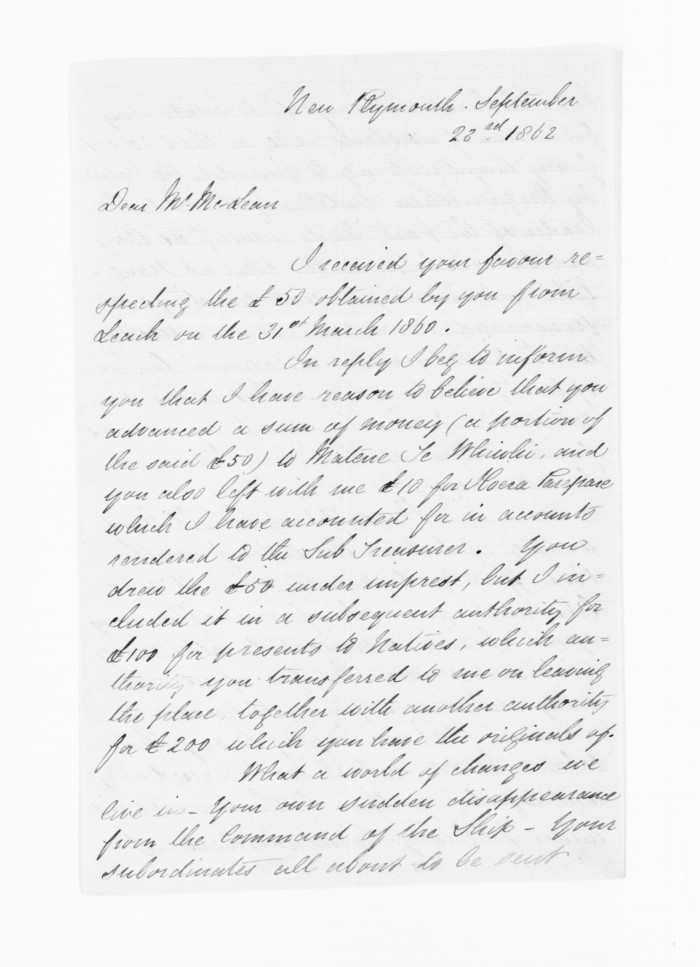 New Plymouth. September
23rd 1862
Dear Mr McLean
I received your favour re=
specting the £50 obtained by you from
Leach on the 31st March 1860.
In reply I beg to inform
you that I have reason to believe that you
advanced a sum of money (a portion of
the said £50) to Matene Te Whiwhi, and
you also left with me £10 for
which I have accounted for in accounts
rendered to the Sub Treasurer. You
drew the £50 under imprest, but I in=
cluded it in a subsequent authority for
£100 for presents to Natives, which au=
thority you transferred to me on leaving
the place, together with another authority
for £200 which you have the originals of.
What a world of changes we
live in - Your own sudden disappearance
from the Command of the Ship - Your
subordinates all about to be sent